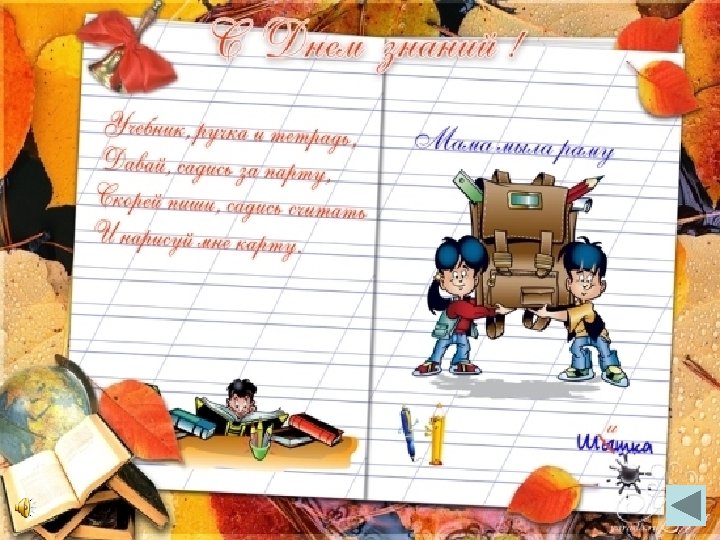 С Днем знаний !
Учебник, ручка и тетрадь,
Давай, садись за парту,
Скорей пиши, садись считать
И нарисуй мне карту.
Мама мыла раму
и
Шытка